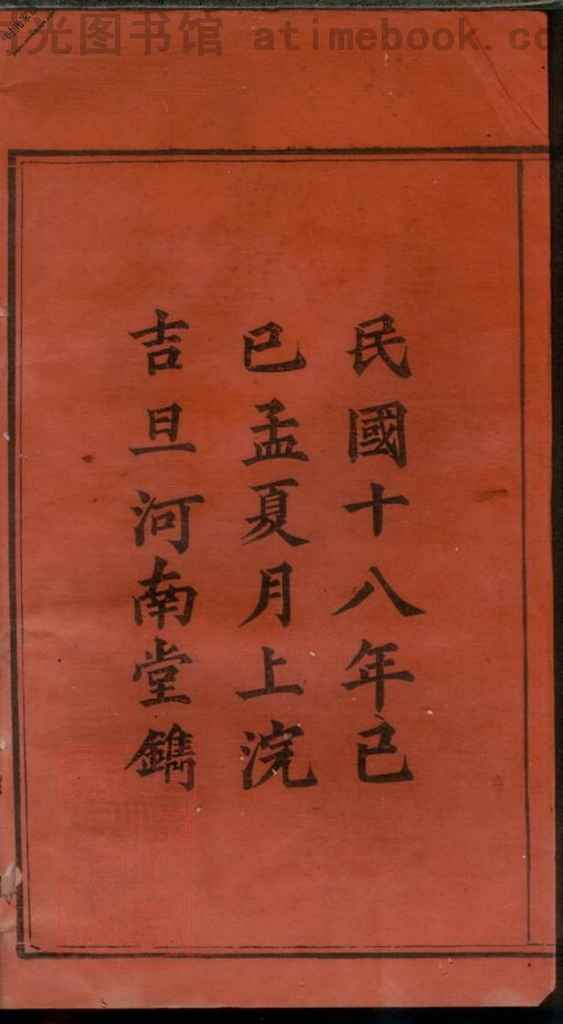 时光图书馆 atimebook.co
民國十八年己
巳孟夏月上浣
吉旦河南堂鐫